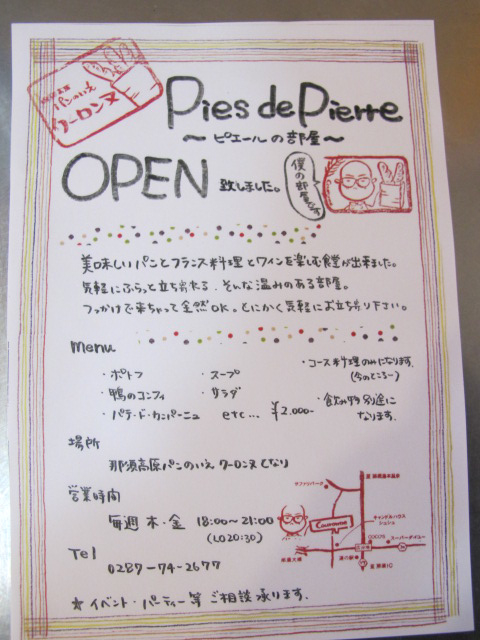 パンのいえ
クーロンヌ
Pies de Pierre
～ピエールの部屋～
OPEN 致しました。
僕の部屋です
美味しいパンとフランス料理とワインを楽しむ食堂が出来ました。
気軽にふらっと立ち寄れる、そんな温みのある部屋。
つっかけで来ちゃって全然OK。とにかく気軽にお立ち寄り下さい。
menu
・ポトフ ・スープ
・鴨のコンフィ ・サラダ
・パテ・ド・カンパーニュ etc... ¥2.000-
・コース料理のみになります。
(今のところー)
・飲み物別途に
なります。
場所
那須高原パンのいえ クーロンヌ となり
営業時間
毎週 木・金 18:00～21:00
(LO20:30)
Tel
0287-74-2677
☆イベント・パーティー等 ご相談承ります。
Couronne